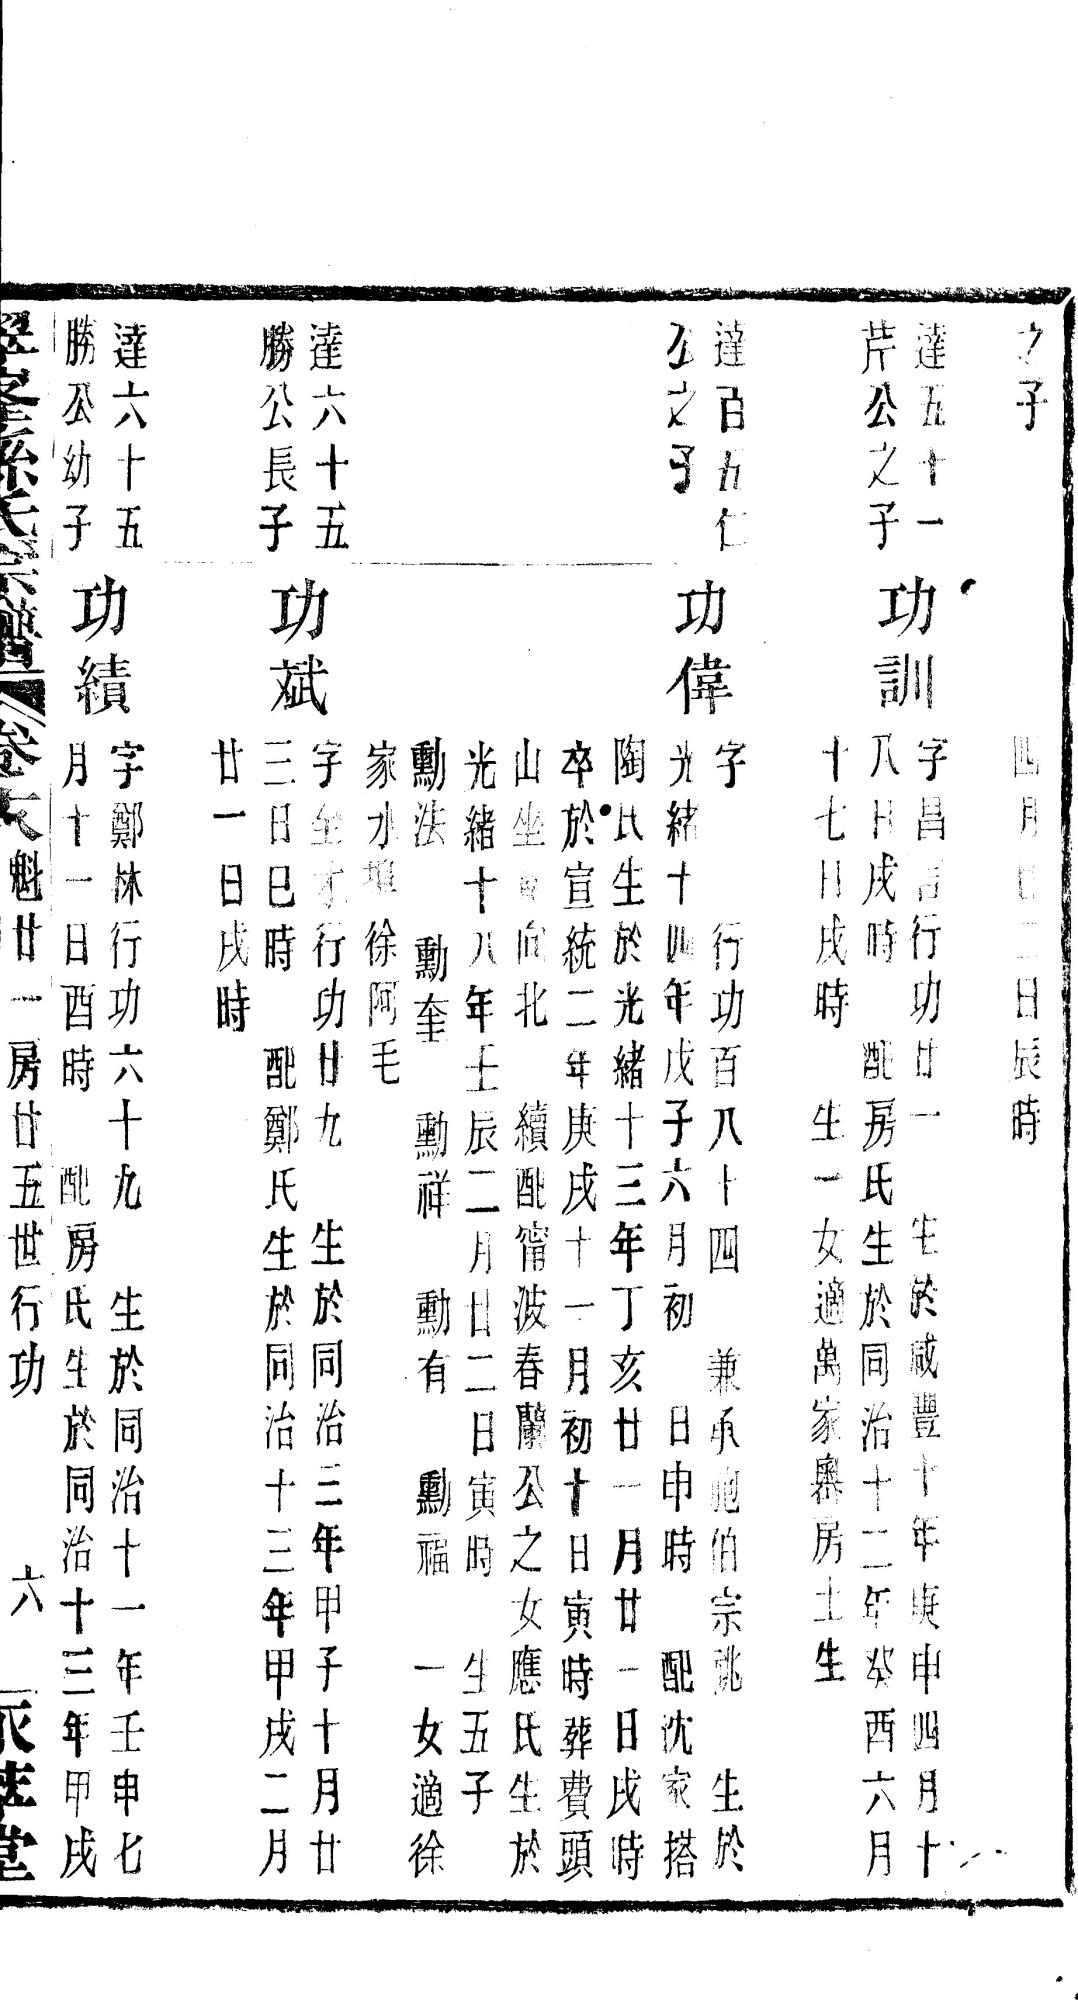 之子
四月 二日辰時
達五十一
芹公之子
功訓
字昌言行功廿一 生於咸豐十年庚申四月十
八日戌時 配房氏生於同治十二年癸酉六月
十七日戌時 生一女適萬家嶴房士生
達百五仁
公之子
功偉
字 行功百八十四 兼承胞伯宗祧 生於
光緒十四年戊子六月初 日申時 配沈家搭
陶氏生於光緒十三年丁亥廿一月廿一日戌時
卒於宣統二年庚戌十一月初十日寅時葬費頭
山坐 向北 續配甯波春蘭公之女應氏生於
光緒十八年壬辰二月廿二日寅時 生五子
勳法 勳奎 勳祥 勳有 勳福 一女適徐
家水 徐阿毛
達六十五
勝公長子
功斌
字 才行功廿九 生於同治三年甲子十月廿
三日巳時 配鄭氏生於同治十三年甲戌二月
廿一日戌時
達六十五
勝公幼子
功績
字鄭林行功六十九 生於同治十一年壬申七
月十一日酉時 配房氏生於同治十三年甲戌
孫氏宗譜 卷 魁廿一房廿五世行功 六 堂